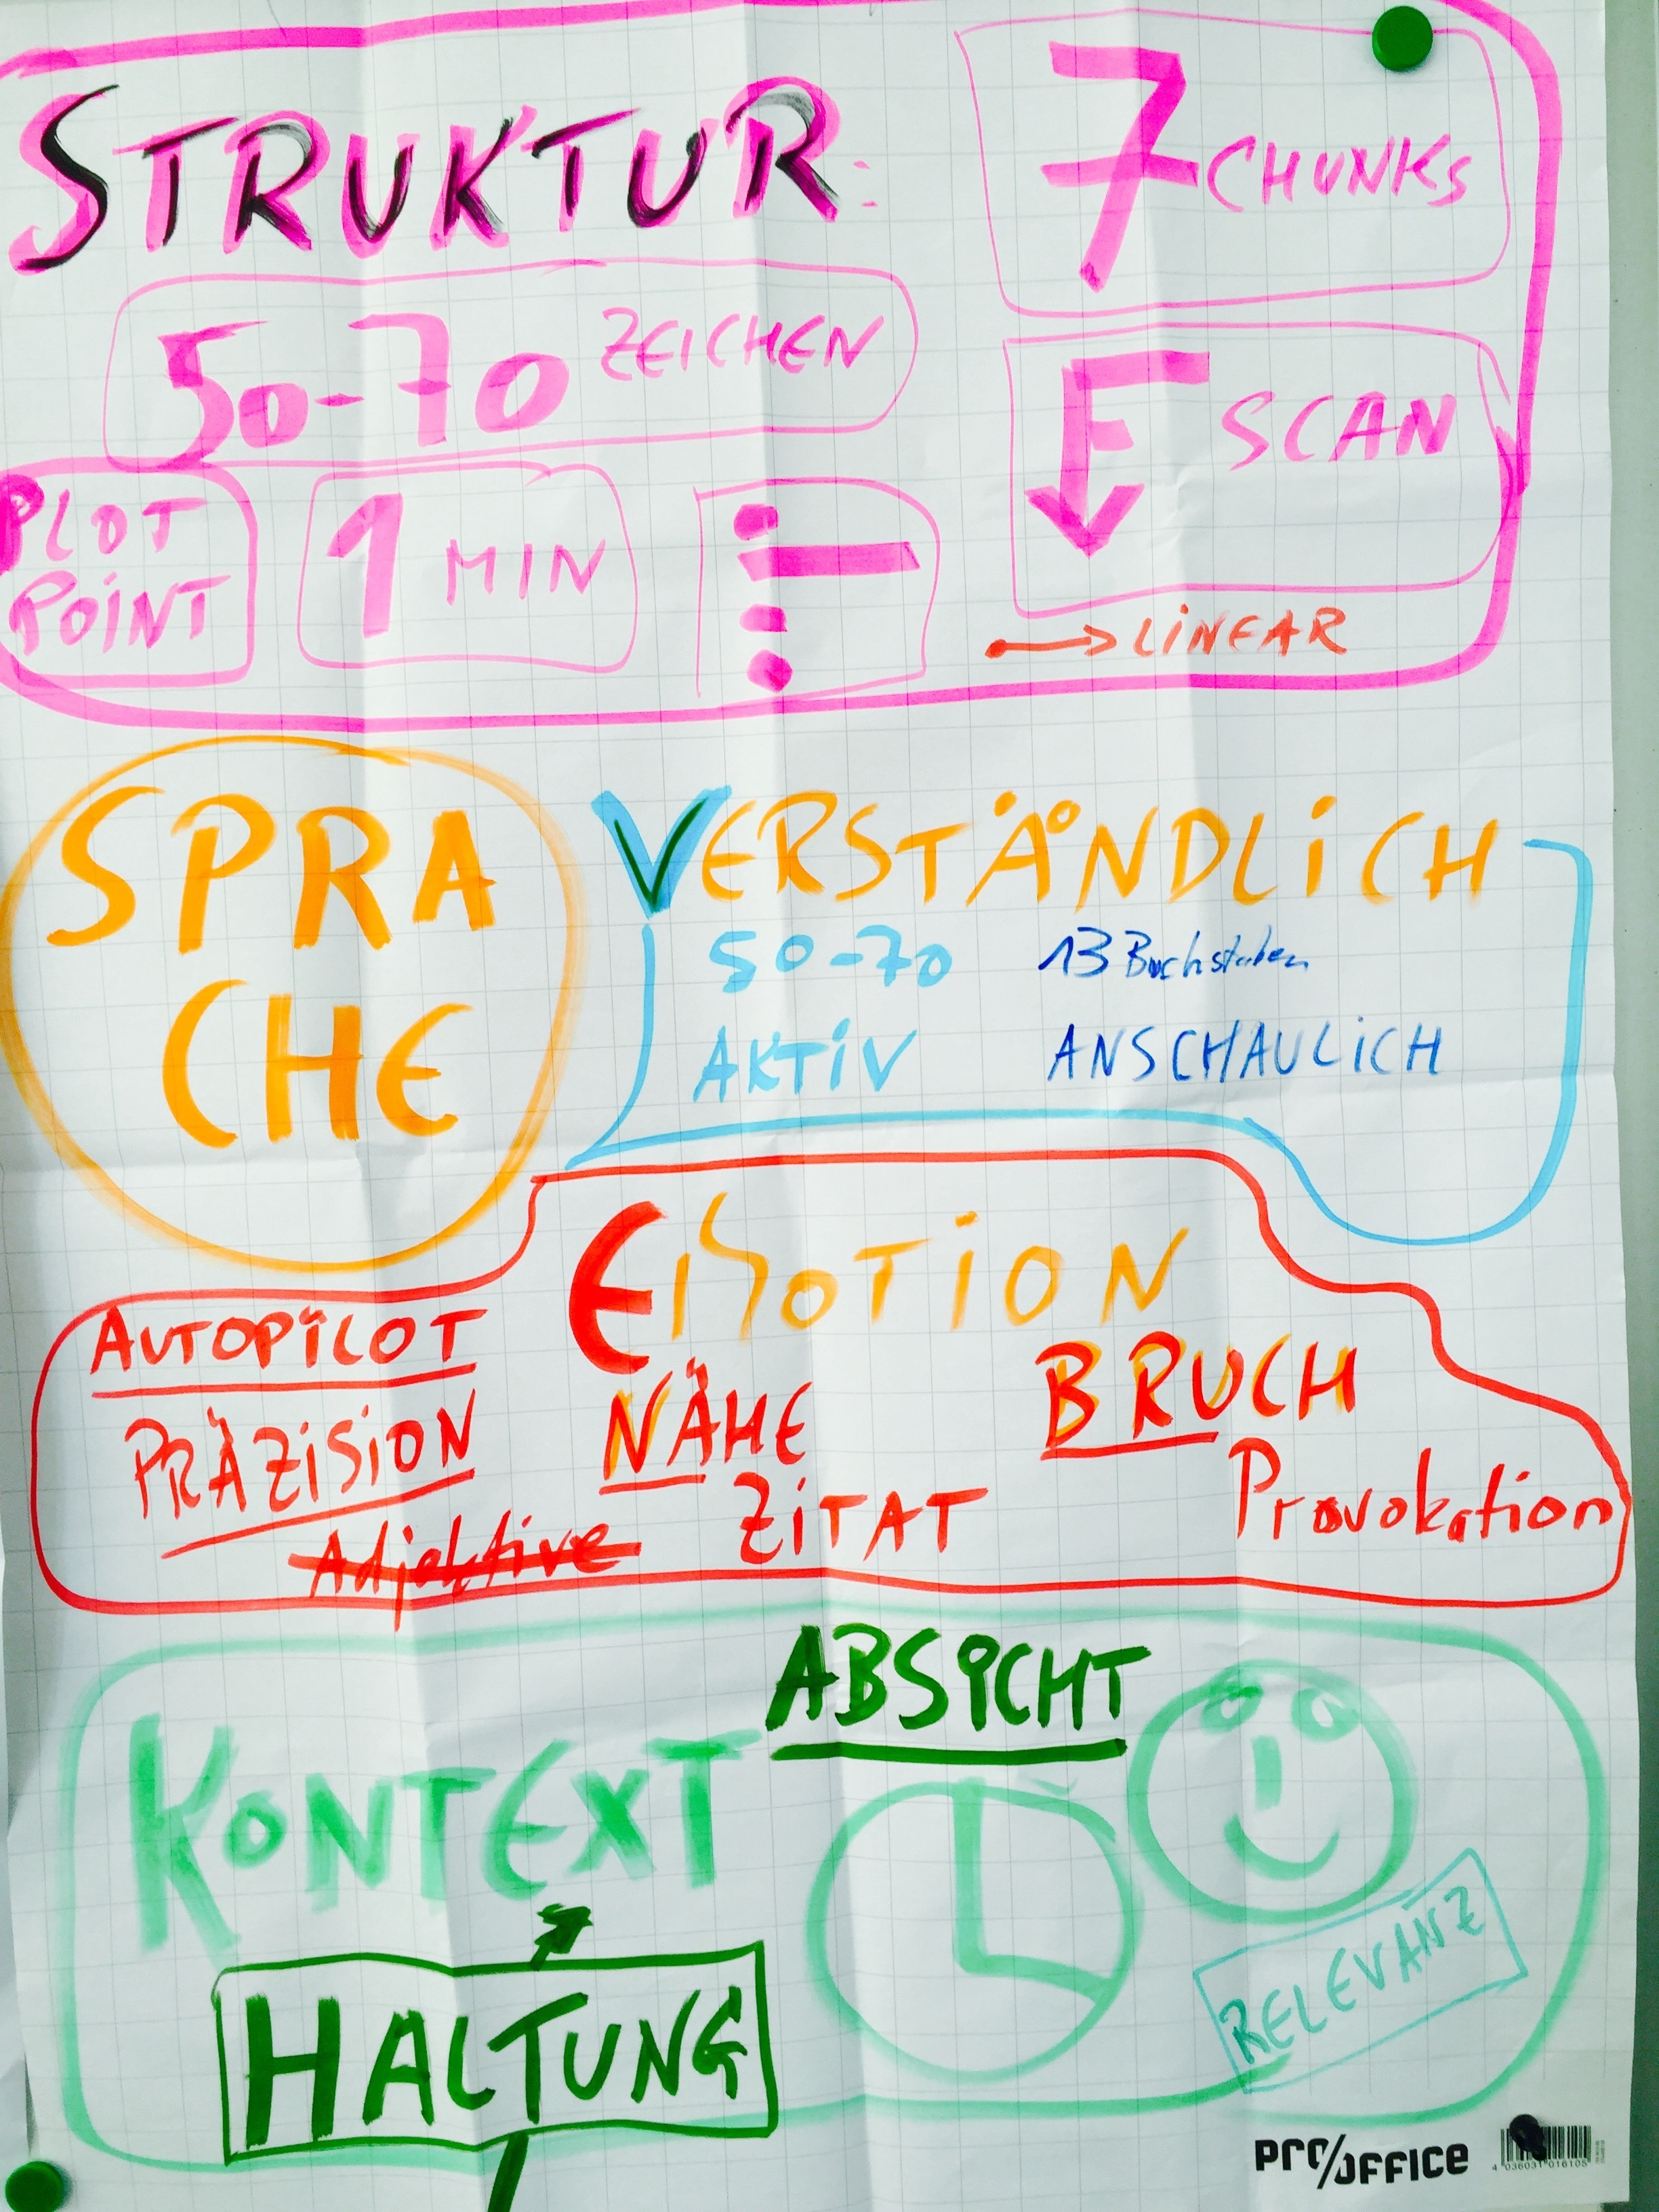 STRUKTUR:
7 CHUNKS
50-70 ZEICHEN
F SCAN
PLOT
POINT
1 MIN
LINEAR
SPRA
CHE
VERSTÄNDLICH
50-70 13 Buchstaben
AKTIV ANSCHAULICH
EMOTION
AUTOPILOT
PRÄZISION
NÄHE
BRUCH
Adjektive
ZITAT
Provokation
ABSICHT
KONTEXT
RELEVANZ
HALTUNG
PRO/OFFICE
4 036031 016105